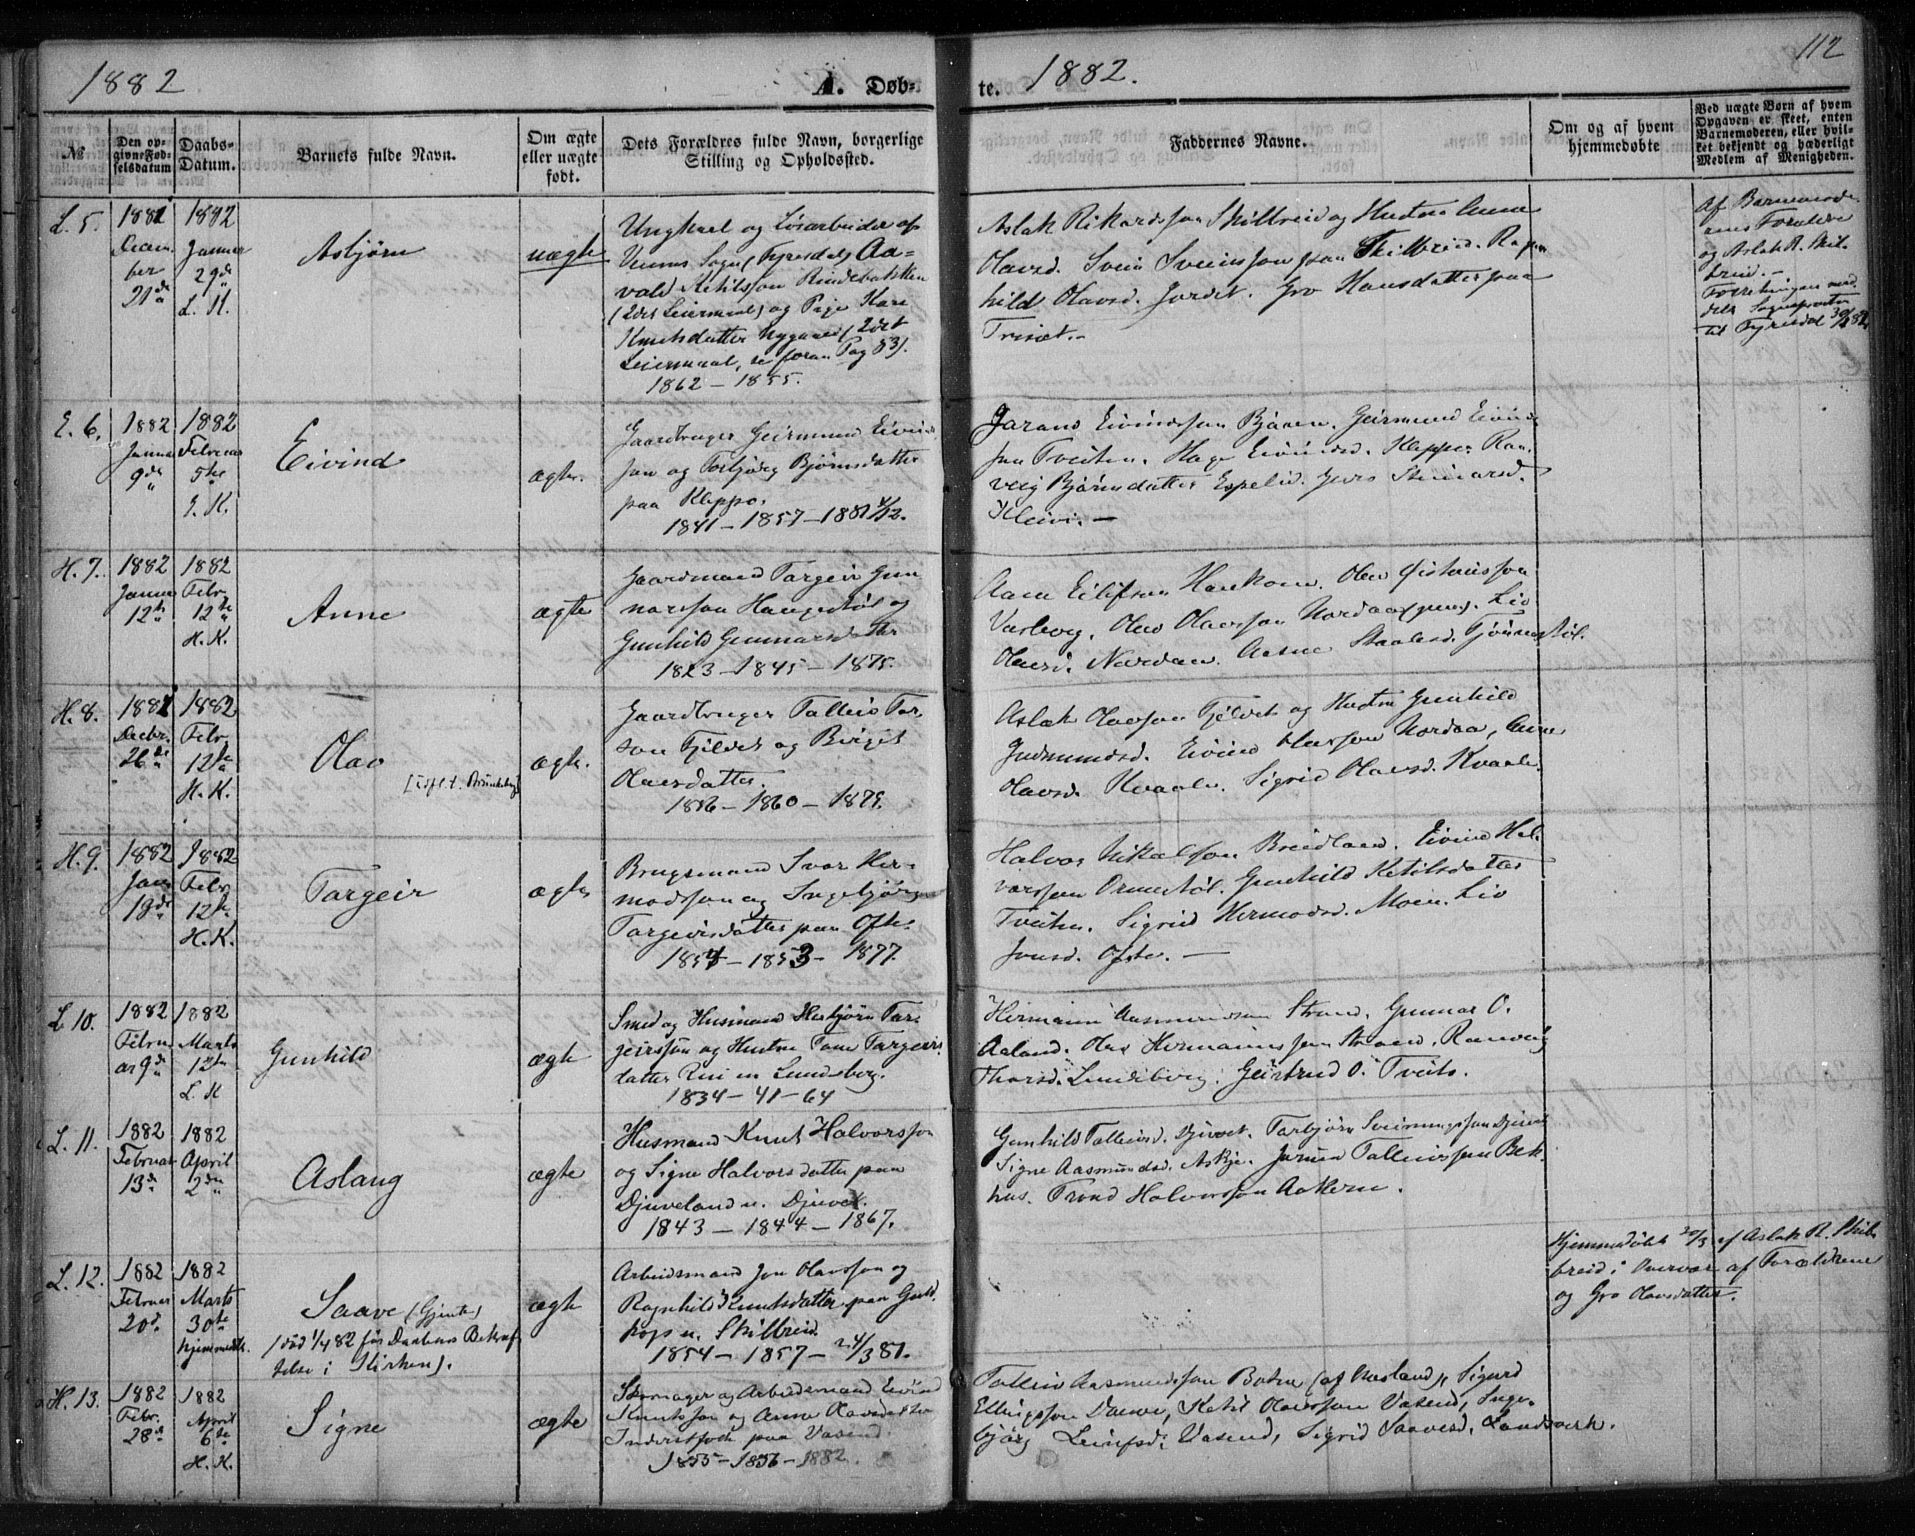 1882
A. Døb-
te.
1882.
112
№
Den op-
givne Fød-
selsdatum
Daabs-
Datum.
Barnets fulde Navn.
Om ægte
eller uægte
født.
Dets Forældres fulde Navn, borgerlige
Stilling og Opholdssted.
Faddernes Navne.
Om og af hvem
hjemmedøbte
Ved uægte Børn af hvem
Opgaven er skeet, enten
Barnemoderen, eller hvil-
ket bekjendt og hæderligt
Medlem af Menigheden.
L. 5.
1881
Decem-
ber
21de
1882
Januar
29de
L. K.
Asbjørn
uægte
Ungkarl og Løsarbeider af
Veums Sogn (Fyresdal) Aa-
vald Ketilsson Rindebakken
(2det Leiermaal) og Pige Kari
Knutsdatter Nygaard (2det
Leiermaal, se foran Pag 83).
1862 - 1855.
Aslak Rikardsson Skilbreid og Hustru Anne
Olavsd. Svein Sveinsson paa Skilbreid. Ragn
hild Olavsd. Jordet. Gro Hansdatter paa
Trinet.
Af Barnemode
rens Forældre
og Aslak R. Skil-
breid.
Forretningen med
delt Sognepresten
til Fyresdal 30/1 82.
E. 6.
1882
Januar
9de
1882
Februar
5te
E. K.
Eivind
ægte.
Gaardbruger Geirmund Eivinds
son og Torbjørg Bjørnsdatter
paa Kleppo.
1841 - 1857 - 1881 4/12.
Jørans Eivindsson Bjåen. Geirmund Eivinds
son Tveiten. Hage Eivindsd. Kleppo. Ran
veig Bjørnsdatter Espelid. Juro Steinarsd.
Kleivi.
H. 7.
1882
Januar
12te
1882
Febr.
12te
H. K.
Anne
ægte
Gaardmand Targeir Gun
narsson Haugestøl og
Gunhild Gunnarsdatter
1823 - 1845 - 1875.
Aani Eilifson Haukom. Olav Øisteinsson
Vasberg. Olav Olavsson Nordaa (gaml.) Liv
Olavsd. Nordaa. Aasne Staalesd. Gjønnestøl.
H. 8.
1881
Decbr.
26de
1882
Febr.
12te
H. K.
Olav
ægte.
Gaardbruger Talleiv Tar
son Fjeldet og Birgit
Olavsdatter.
1856 - 1860 - 1879.
Aslak Olavson Fjeldet og Hustru Gunhild
Gudmundsd. Eivind Olavsson Nordaa, Anne
Olavsd. Kvaale. Sigrid Olavsd. Kvaale.
H. 9.
1882
Jan.
13de
1882
Febr.
12te
H. K.
Targeir
ægte
Brugsmand Ivar Her-
modsson og Ingebjørg
Targeirsdatter paa Ofte.
1854 - 1853 - 1877.
Halvor Nikolsson Breidland. Eivind Hal-
vorsson Ormestøl. Gunhild Ketilsdatter
Tveiten. Sigrid Hermodsd. Moen. Liv
Jonsd. Ofte.
L. 10.
1882
Febru
ar 9de
1882
Marts
12te
L. K
Gunhild
ægte
Smed og Husmand Herbjørn Tar-
geirsson og Hustru Tone Targeirs
datter Rui u. Lundeberg.
1834 - 41 - 64
Hermann Aasmundson Strand. Gunnar O.
Aaland. Olav Hermannsson Strand. Ranveig
Thorsd. Lundeberg. Geirtrud O. Tveito.
L. 11.
1882
Februar
13de
1882
April
2den
Aslaug
ægte
Husmand Knut Halvorsson
og Signe Halvorsdatter paa
Djuveland u. Djuvet.
1843 - 1844 - 1867.
Gunhild Talleivsd. Djuvet. Tarbjørn Sveinungsson Djuvet
Signe Aasmundsd. Askje. Jørund Talleivsson Bek-
hus. Trond Halvorsson Aakern.
L. 12.
1882
Februar
20de
1882
Marts
30te
hjemmedbt.
Saave (Gjente)
(død 1/4 82 før Daabens Bekræf
telse i Kirken).
ægte
Arbeidsmand Jon Olavsson og
Ragnhild Knutsdatter paa Guld
kop u. Skilbreid
1854 - 1857 - 24/3 81.
Hjemmedøbt 30/3 af Aslak R. Skil-
breid i Overvær af Forældrene
og Gro Olavsdatter.
H. 13.
1882
Febr.
28de
1882
April
6te
H. K.
Signe
ægte
Skomager og Arbeidsmand Eivind
Knutsson og Anne Olavsdatter
Inderstfolk paa Vasend.
1855 - 1856 - 1882.
Talleiv Aasmundsson Botn (af Aasland), Sigurd
Ellingsson Daave, Ketil Olavsson Vasend, Inge-
bjørg Leivsd. Vasend, Sigrid Saavesd. Landsverk.